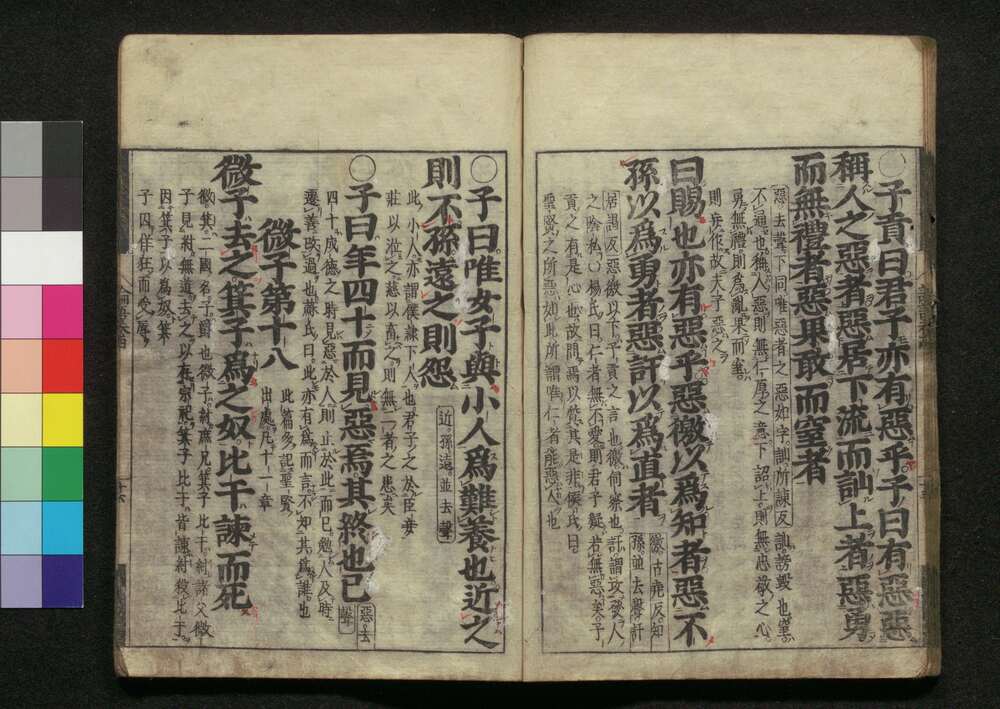 ○子貢曰君子亦有惡乎子曰有惡惡
稱人之惡者惡居下流而訕上者惡勇
而無禮者惡果敢而窒者
惡去聲下同唯惡者之惡如字訕所諫反訕謗毀也窒
不通也稱人惡則無仁厚之意下訕上則無忠敬之心
勇無禮則爲亂果而窒
則妄作故夫子惡之
曰賜也亦有惡乎惡徼以爲知者惡不
孫以爲勇者惡訐以爲直者
徼古堯反知
孫並去聲訐
居謁反惡徼以下子貢之言也徼伺察也訐謂攻發人
之陰私○楊氏曰仁者無不愛則君子疑若無惡矣子
貢之有是心也故問焉以質其是非侯氏曰
聖賢之所惡如此所謂唯仁者能惡人也
○子曰唯女子與小人爲難養也近之
則不孫遠之則怨
近孫遠並去聲
此小人亦謂僕隷下人也君子之於臣妾
莊以涖之慈以畜之則無二者之患矣
○子曰年四十而見惡焉其終也已
惡去
聲
四十成德之時見惡於人則止於此而已勉人及時
遷善改過也蘇氏曰此亦有爲而言不知其爲誰也
微子第十八
此篇多記聖賢
出處凡十一章
微子去之箕子爲之奴比干諫而死
微箕二國名子爵也微子紂庶兄箕子比干紂諸父微
子見紂無道去之以存宗祀箕子比干皆諫紂殺比干
因箕子以爲奴箕
子因佯狂而受辱